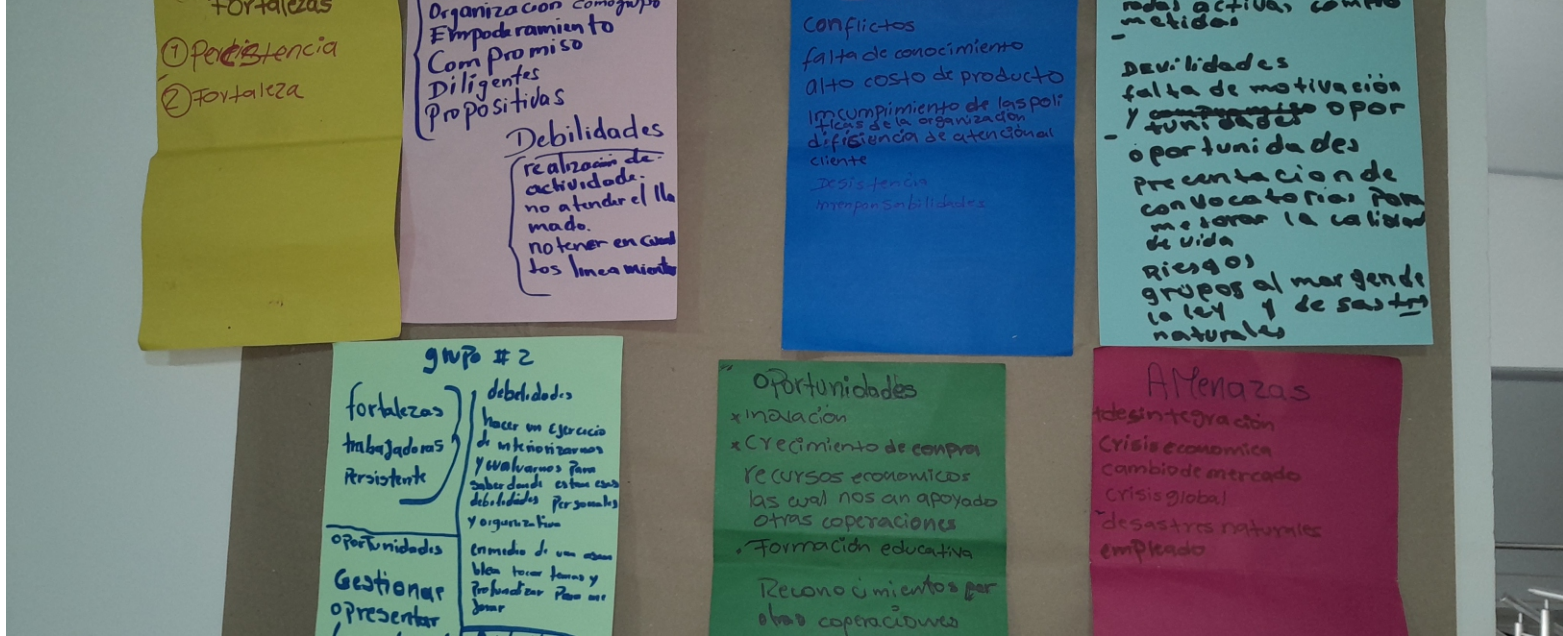 Fortalezas
① Percistencia
② Fortaleza
Organizacion como grupo
Empoderamiento
Compromiso
Diligentes
Propositivas
Debilidades
realización de
actividade.
no atender el lla
mado.
no tener en cuent
los lineamient
conflictos
falta de conocimiento
alto costo de producto
imcumpimiento de las poli
ticas de la organización
difisiencia de atencional
cliente
Desistencia
metidas
Devilidades
falta de motivación
y opor
tunidades
oportunidades
precentacion de
convocatorias para
mejorar la calidad
de vida
Riesgos
grupos al margen de
la ley y desastres
naturales
grupo # 2
fortalezas
trabajadoras
Persistente
debelidades
hacer un ejercicio
de interiorizarnos
y evaluarnos para
saber donde estan esas
debilidades personales
y organizativa
enmedio de una asam
blea tocar temas y
profundizar para me
jorar
oportunidades
Gestionar
o presentar
Oportunidades
x inovación
x Crecimiento de compra
recursos economicos
las cual nos an apoyado
otras coperaciones
. Formación educativa
Reconocimientos por
otras coperaciones
AMenazas
desintegración
crisis economica
cambio de mercado
crisis global
desastres naturales
empleado